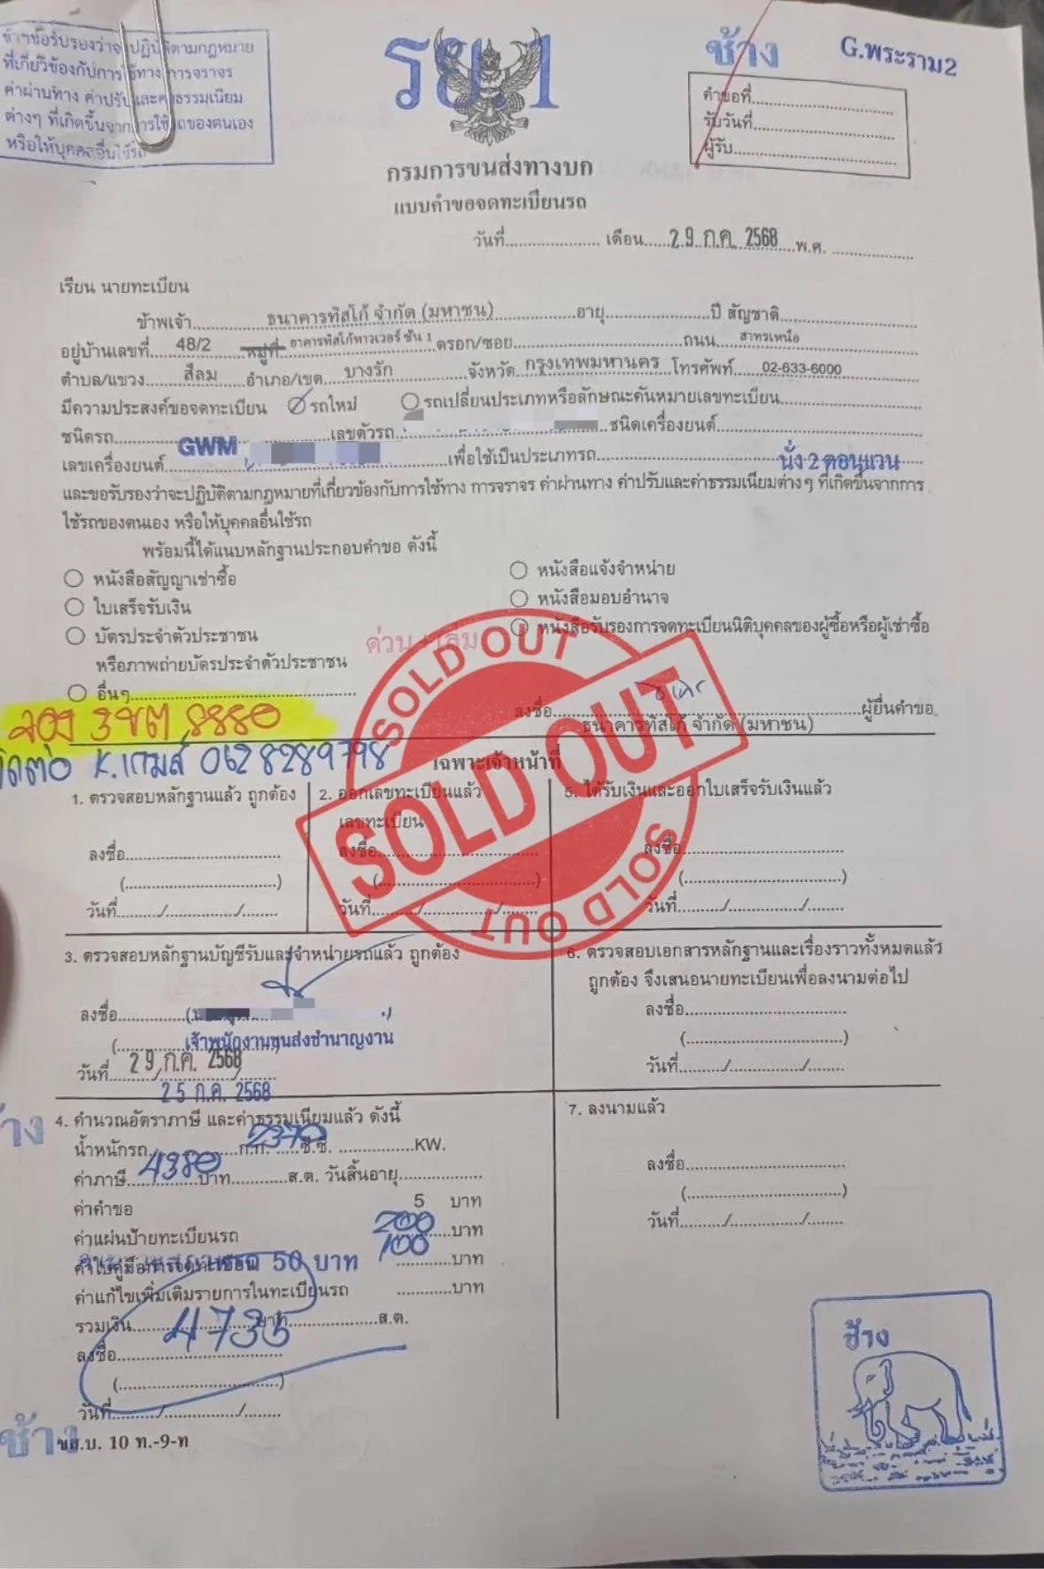 ข้าฯขอรับรองว่าจะปฏิบัติตามกฎหมาย
ที่เกี่ยวข้องกับการใช้ทาง การจราจร
ค่าผ่านทาง ค่าปรับและค่าธรรมเนียม
ต่างๆ ที่เกิดขึ้นจากการใช้รถของตนเอง
หรือให้บุคคลอื่นใช้รถ
รย 1
ช้าง
G.พระราม2
คำขอที่
รับวันที่
ผู้รับ
กรมการขนส่งทางบก
แบบคำขอจดทะเบียนรถ
วันที่ เดือน 29 ก.ค. 2568 พ.ศ.
เรียน นายทะเบียน
ข้าพเจ้า ธนาคารทิสโก้ จำกัด (มหาชน) อายุ ปี สัญชาติ
อยู่บ้านเลขที่ 48/2 หมู่ที่ อาคารทิสโก้ทาวเวอร์ ชั้น 1 ตรอก/ซอย ถนน สาทรเหนือ
ตำบล/แขวง สีลม อำเภอ/เขต บางรัก จังหวัด กรุงเทพมหานคร โทรศัพท์ 02-633-6000
มีความประสงค์ขอจดทะเบียน รถใหม่ รถเปลี่ยนประเภทหรือลักษณะคันหมายเลขทะเบียน
ชนิดรถ GWM เลขตัวรถ ชนิดเครื่องยนต์
เลขเครื่องยนต์ เพื่อใช้เป็นประเภทรถ นั่ง 2 ตอนแวน
และขอรับรองว่าจะปฏิบัติตามกฎหมายที่เกี่ยวข้องกับการใช้ทาง การจราจร ค่าผ่านทาง ค่าปรับและค่าธรรมเนียมต่างๆ ที่เกิดขึ้นจากการ
ใช้รถของตนเอง หรือให้บุคคลอื่นใช้รถ
พร้อมนี้ได้แนบหลักฐานประกอบคำขอ ดังนี้
หนังสือสัญญาเช่าซื้อ
หนังสือแจ้งจำหน่าย
ใบเสร็จรับเงิน
หนังสือมอบอำนาจ
บัตรประจำตัวประชาชน
หนังสือรับรองการจดทะเบียนนิติบุคคลของผู้ซื้อหรือผู้เช่าซื้อ
หรือภาพถ่ายบัตรประจำตัวประชาชน
อื่นๆ
ด่วน
จอง 3ขต 8880
ลงชื่อ ผู้ยื่นคำขอ
ธนาคารทิสโก้ จำกัด (มหาชน)
ติดต่อ K.เกมส์ 0628289798
SOLD OUT
SOLD OUT
SOLD OUT
เฉพาะเจ้าหน้าที่
1. ตรวจสอบหลักฐานแล้ว ถูกต้อง
ลงชื่อ
วันที่
2. ออกเลขทะเบียนแล้ว
เลขทะเบียน
ลงชื่อ
วันที่
5. ได้รับเงินและออกใบเสร็จรับเงินแล้ว
ลงชื่อ
วันที่
3. ตรวจสอบหลักฐานบัญชีรับและจำหน่ายรถแล้ว ถูกต้อง
ลงชื่อ
เจ้าพนักงานขนส่งชำนาญงาน
วันที่ 29 ก.ค. 2568
25 ก.ค. 2568
6. ตรวจสอบเอกสารหลักฐานและเรื่องราวทั้งหมดแล้ว
ถูกต้อง จึงเสนอนายทะเบียนเพื่อลงนามต่อไป
ลงชื่อ
วันที่
ช้าง
4. คำนวณอัตราภาษี และค่าธรรมเนียมแล้ว ดังนี้
น้ำหนักรถ ก.ก. 2370 ซี.ซี. KW.
ค่าภาษี 4380 บาท ส.ต. วันสิ้นอายุ
ค่าคำขอ 5 บาท
ค่าแผ่นป้ายทะเบียนรถ 200 บาท
100 บาท
50 บาท
ค่าแก้ไขเพิ่มเติมรายการในทะเบียนรถ บาท
รวมเงิน 4735 บาท ส.ต.
ลงชื่อ
วันที่
7. ลงนามแล้ว
ลงชื่อ
วันที่
ช้าง
ช้าง
ขส.บ. 10 ท.-9-ท